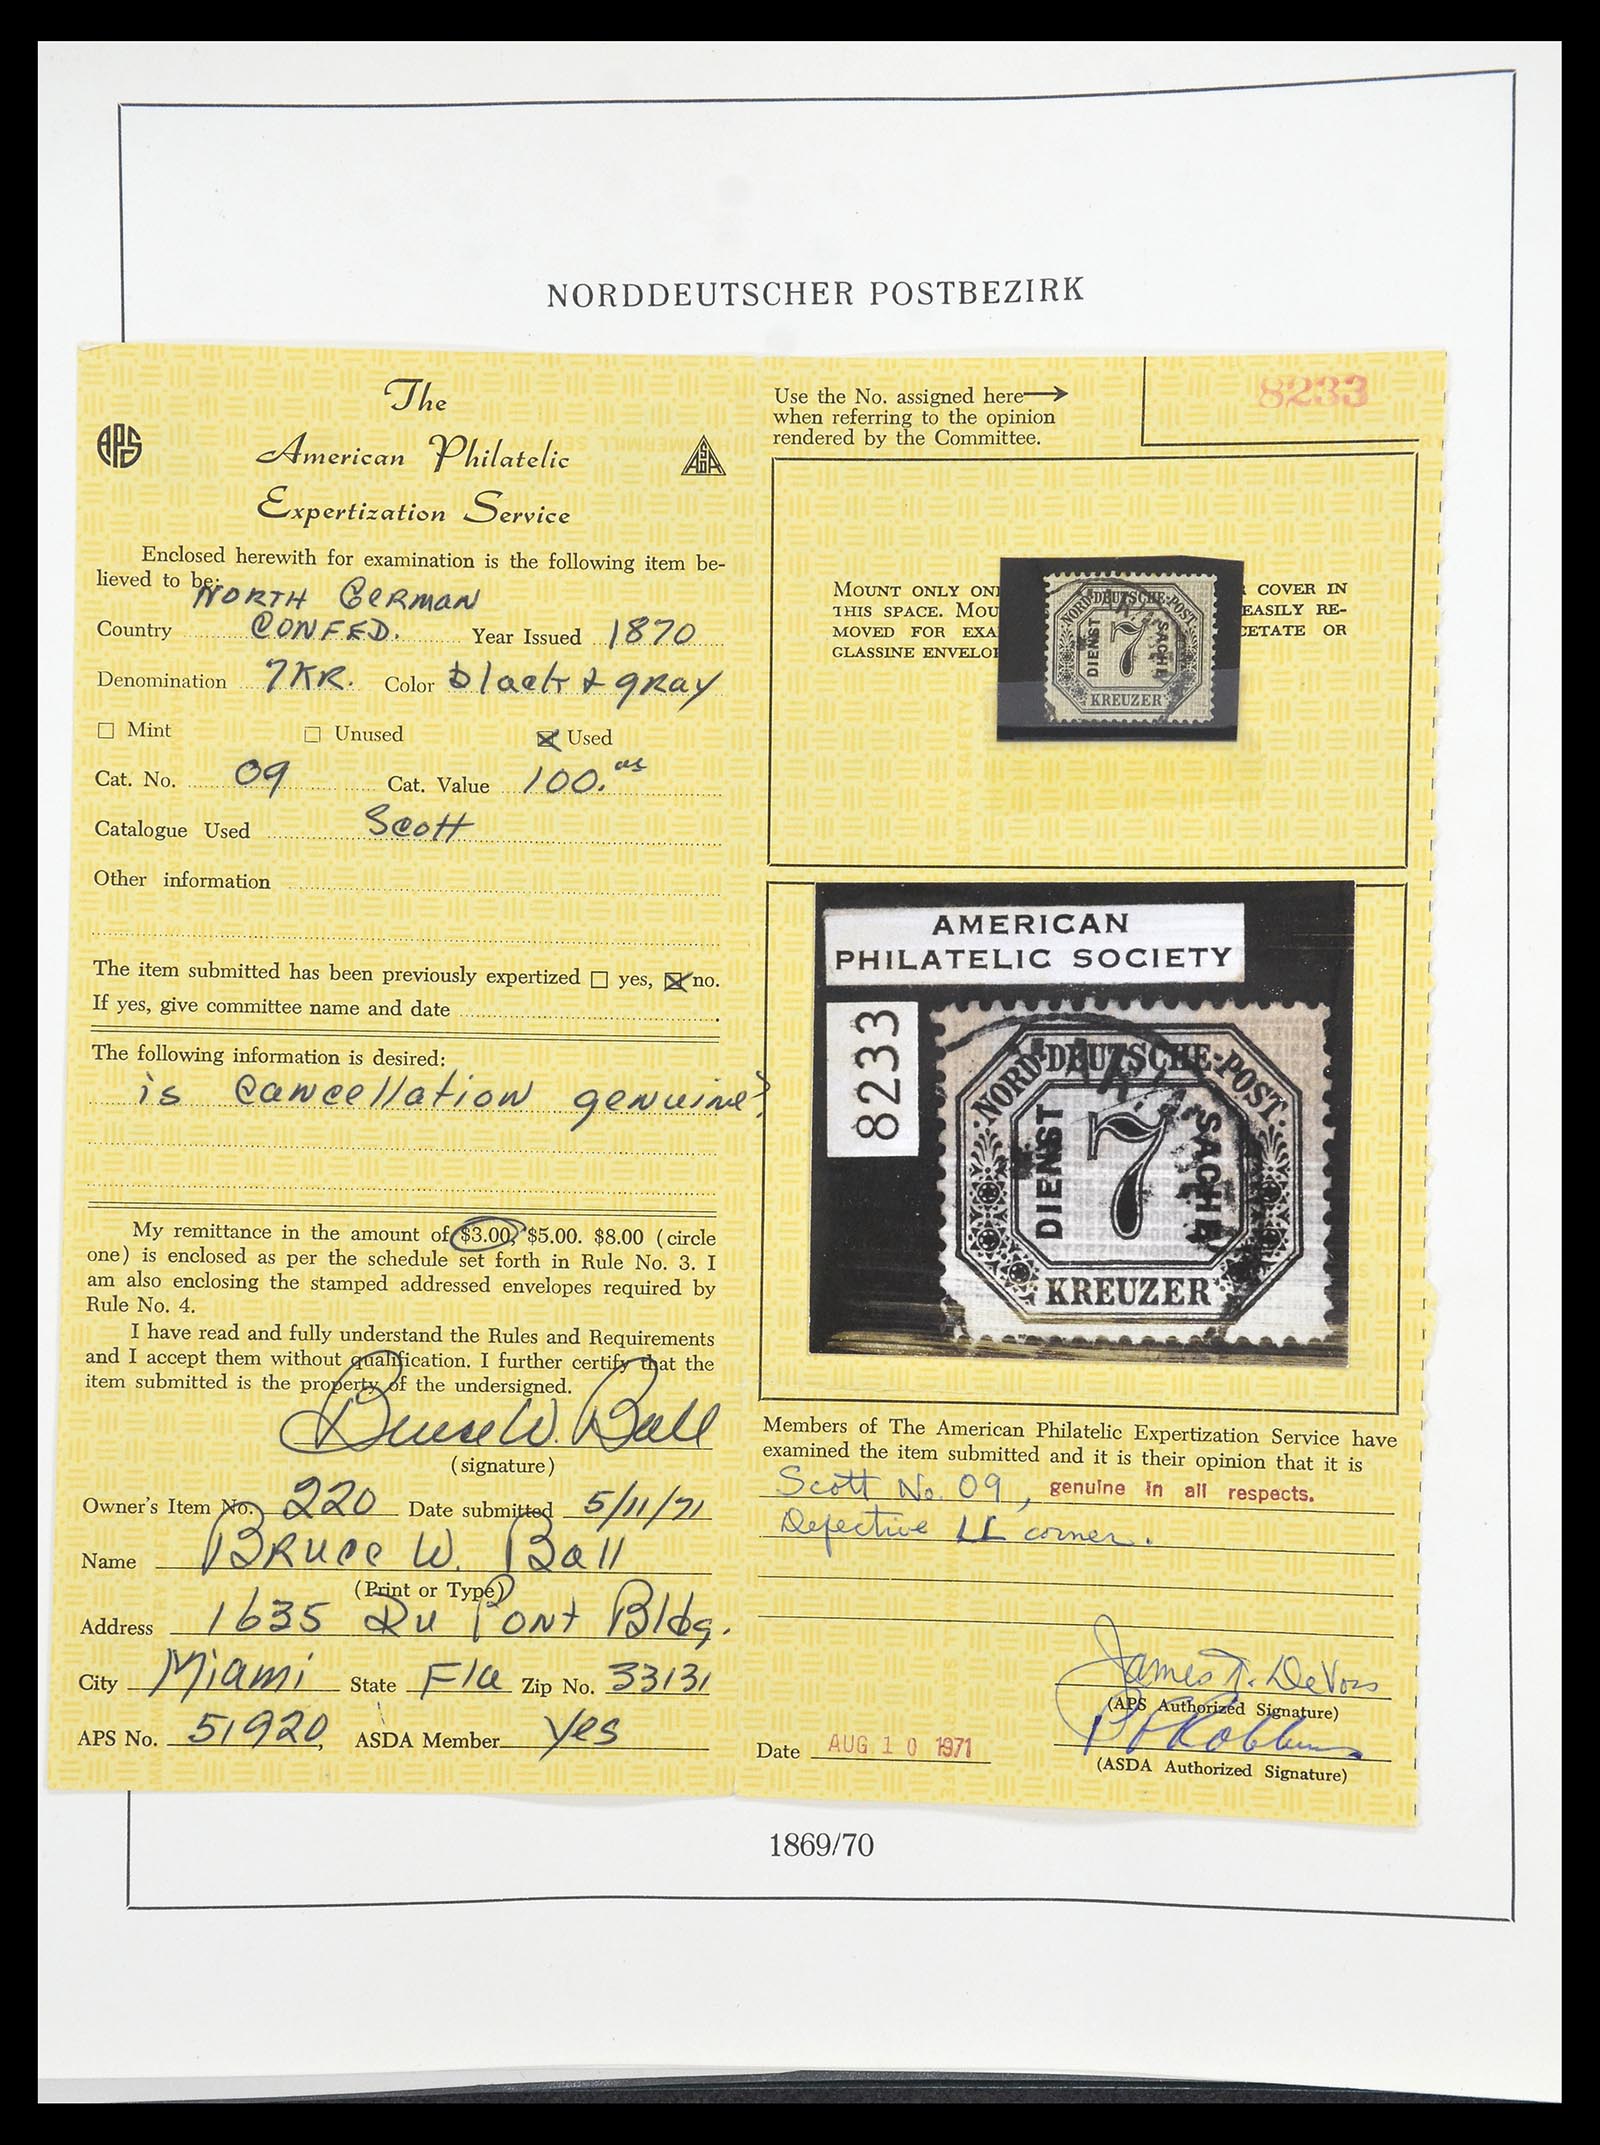 NORDDEUTSCHER POSTBEZIRK
The
APS
American Philatelic
ASDA
Expertization Service
Enclosed herewith for examination is the following item be-
lieved to be:
NORTH GERMAN
Country CONFED. Year Issued 1870
Denomination 7KR. Color black & gray
Mint Unused Used
Cat. No. O9 Cat. Value 100.00
Catalogue Used Scott
Other information
The item submitted has been previously expertized yes, no.
If yes, give committee name and date
The following information is desired:
is cancellation genuine?
My remittance in the amount of $3.00, $5.00. $8.00 (circle
one) is enclosed as per the schedule set forth in Rule No. 3. I
am also enclosing the stamped addressed envelopes required by
Rule No. 4.
I have read and fully understand the Rules and Requirements
and I accept them without qualification. I further certify that the
item submitted is the property of the undersigned.
Bruce W. Ball
(signature)
Owner's Item No. 220 Date submitted 5/11/71
Name Bruce W. Ball
(Print or Type)
Address 1635 Du Pont Bldg.
City Miami State Fla Zip No. 33131
APS No. 51920, ASDA Member Yes
Use the No. assigned here
when referring to the opinion
rendered by the Committee.
8233
MOUNT ONLY ON COVER IN
THIS SPACE. MOU EASILY RE-
MOVED FOR EXA CETATE OR
GLASSINE ENVELO
NORD-DEUTSCHE-POST
DIENST 7 SACHE
KREUZER
AMERICAN
PHILATELIC SOCIETY
8233
NORD-DEUTSCHE-POST
DIENST 7 SACHE
KREUZER
Members of The American Philatelic Expertization Service have
examined the item submitted and it is their opinion that it is
Scott No. O9, genuine in all respects.
Defective LL corner.
James T. DeVoss
(APS Authorized Signature)
Date AUG 10 1971
(ASDA Authorized Signature)
1869/70